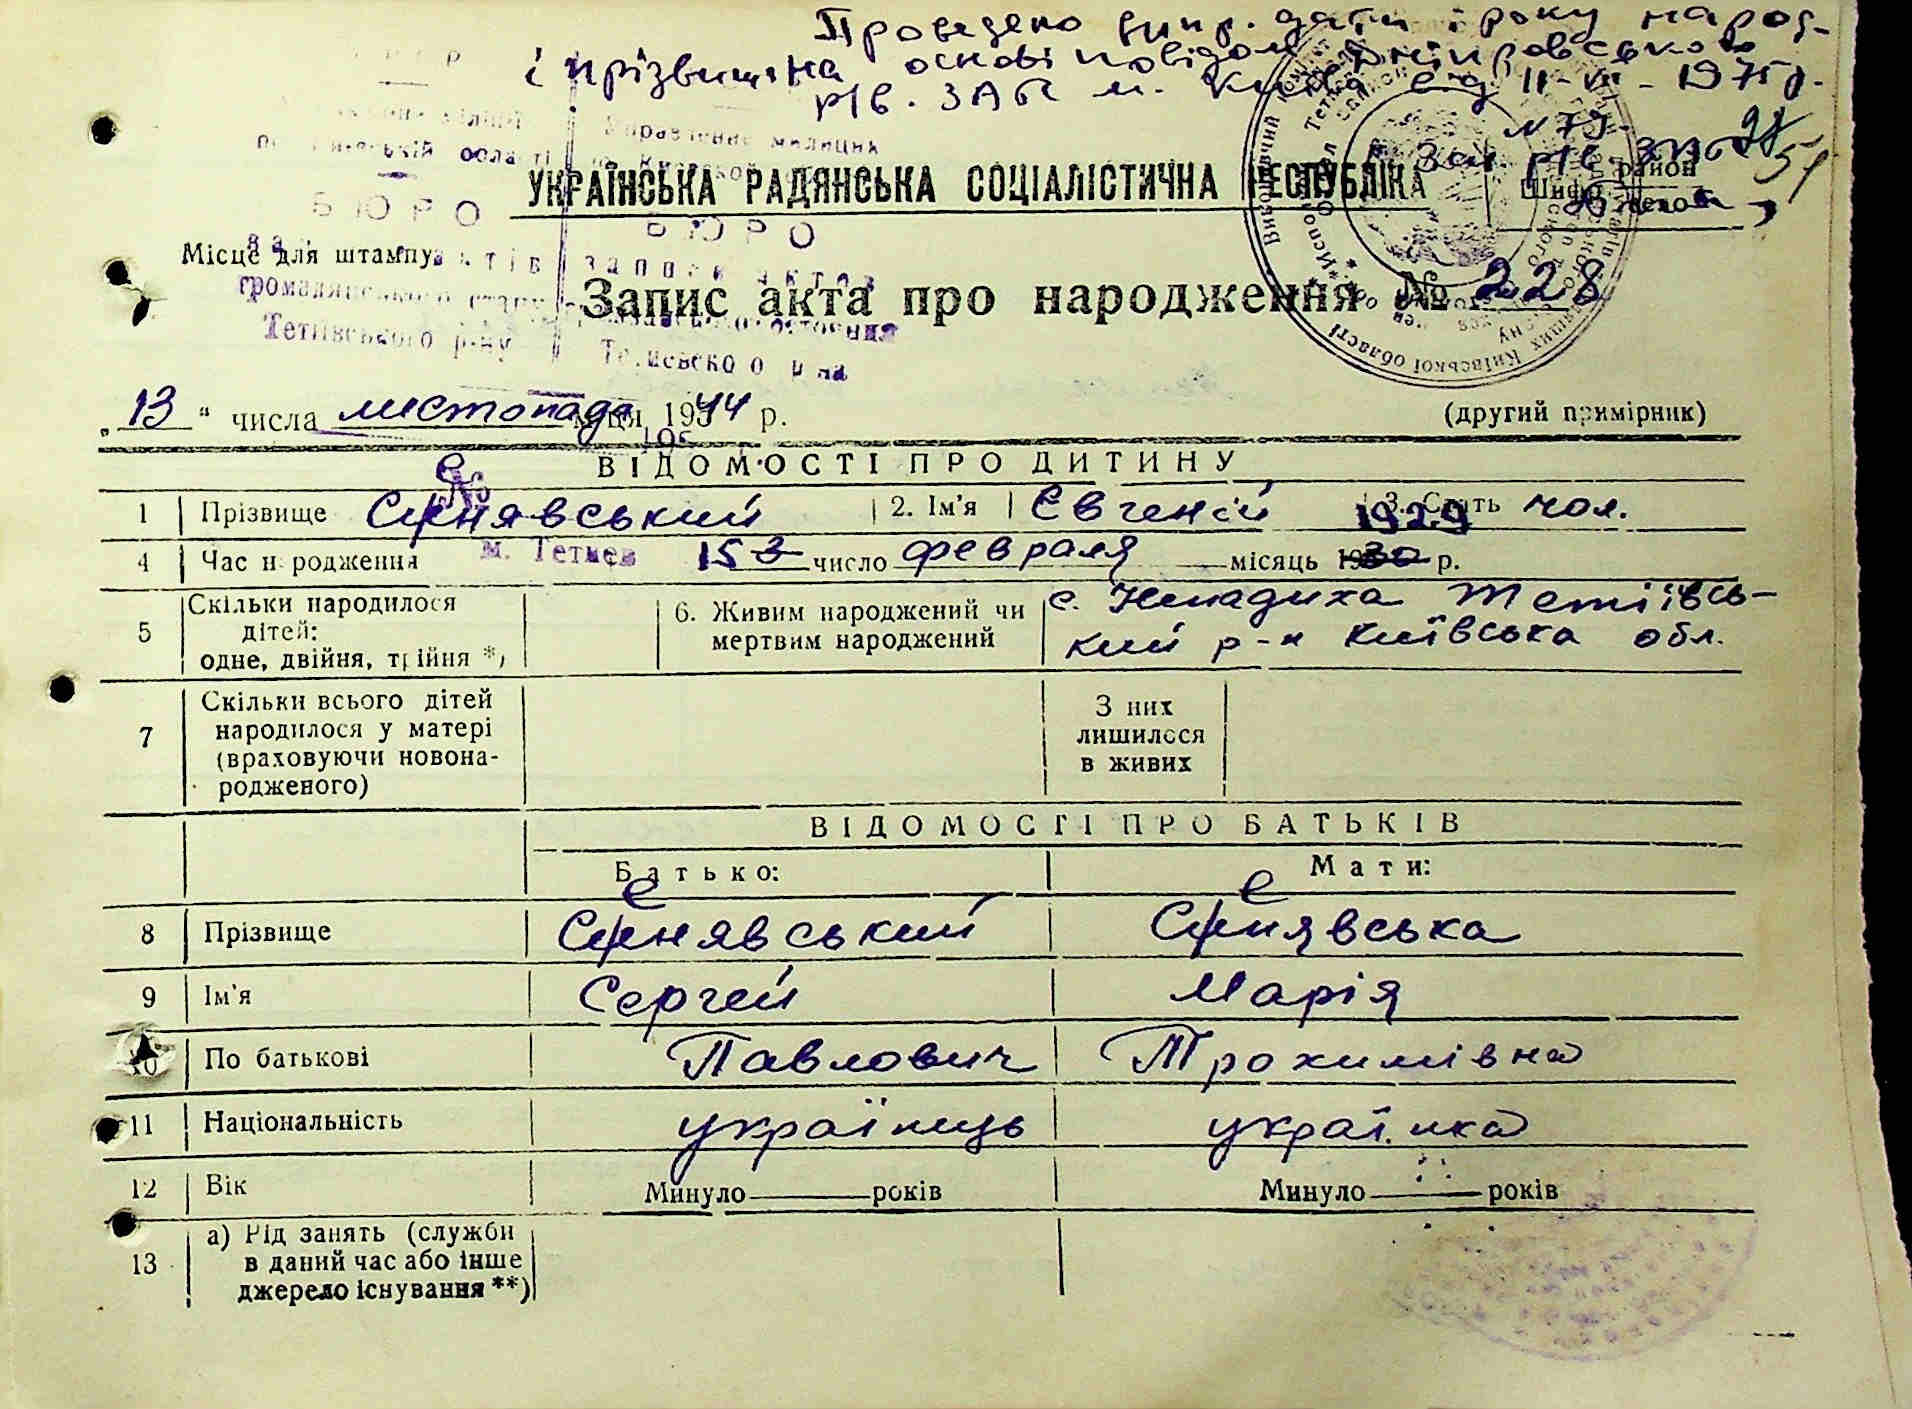 Проведено випр. дати і року народ-
і прізвища на основі повідом. Дніпровського
р/в. ЗАГС м. Києва від 11-VI-1975р.
N 79
УКРАЇНСЬКА РАДЯНСЬКА СОЦІАЛІСТИЧНА РЕСПУБЛІКА
район
Шифр
БЮРО БЮРО
Місце для штампу
актів записи актов
громадянського стану гражданского состояния
Тетіївського р-ну Тетиевского р-на
Запис акта про народження № 228
„13“ числа листопада м-ця 1944 р.
(другий примірник)
ВІДОМОСТІ ПРО ДИТИНУ
е
1 Прізвище Синявський 2. Ім'я Євгеній 3. Стать чол.
1929
4 Час народження м. Тетиев 15 3 число февраля місяць 1930 р.
5 Скільки народилося
дітей:
одне, двійня, трійня *)
6. Живим народжений чи
мертвим народжений
с. Ненадиха Тетіївсь-
кий р-н Київська обл.
7 Скільки всього дітей
народилося у матері
(враховуючи новона-
родженого)
З них
лишилося
в живих
ВІДОМОСТІ ПРО БАТЬКІВ
Батько: Мати:
е е
8 Прізвище Синявський Синявська
9 Ім'я Сергей Марія
10 По батькові Павлович Трохимівна
11 Національність українець українка
12 Вік Минуло років Минуло років
13 а) Рід занять (служби
в даний час або інше
джерело існування **)